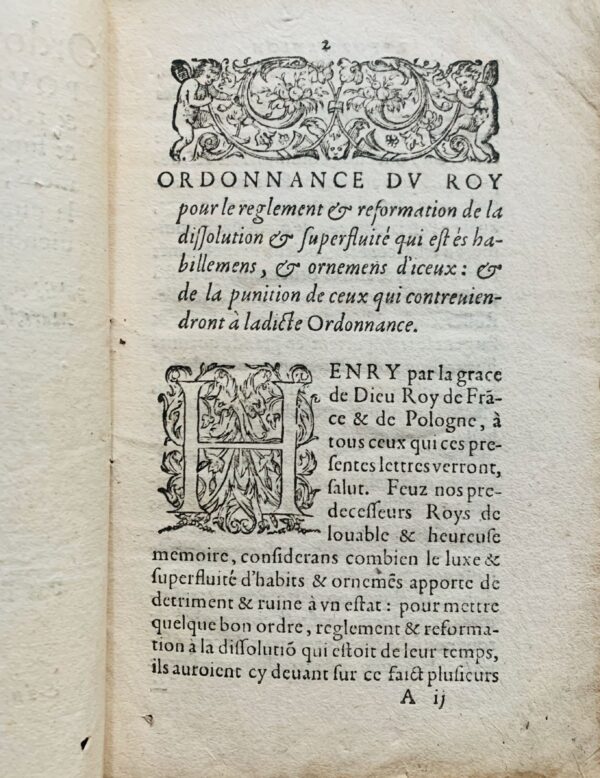 2
ORDONNANCE DV ROY
pour le reglement & reformation de la
dissolution & superfluité qui est és ha-
billemens, & ornemens d'iceux: &
de la punition de ceux qui contreuien-
dront à ladicte Ordonnance.
HENRY par la grace
de Dieu Roy de Frã-
ce & de Pologne, à
tous ceux qui ces pre-
sentes lettres verront,
salut. Feuz nos pre-
decesseurs Roys de
louable & heureuse
memoire, considerans combien le luxe &
superfluité d'habits & ornemẽs apporte de
detriment & ruine à vn estat: pour mettre
quelque bon ordre, reglement & reforma-
tion à la dissolutiõ qui estoit de leur temps,
ils auroient cy deuant sur ce faict plusieurs
A ij